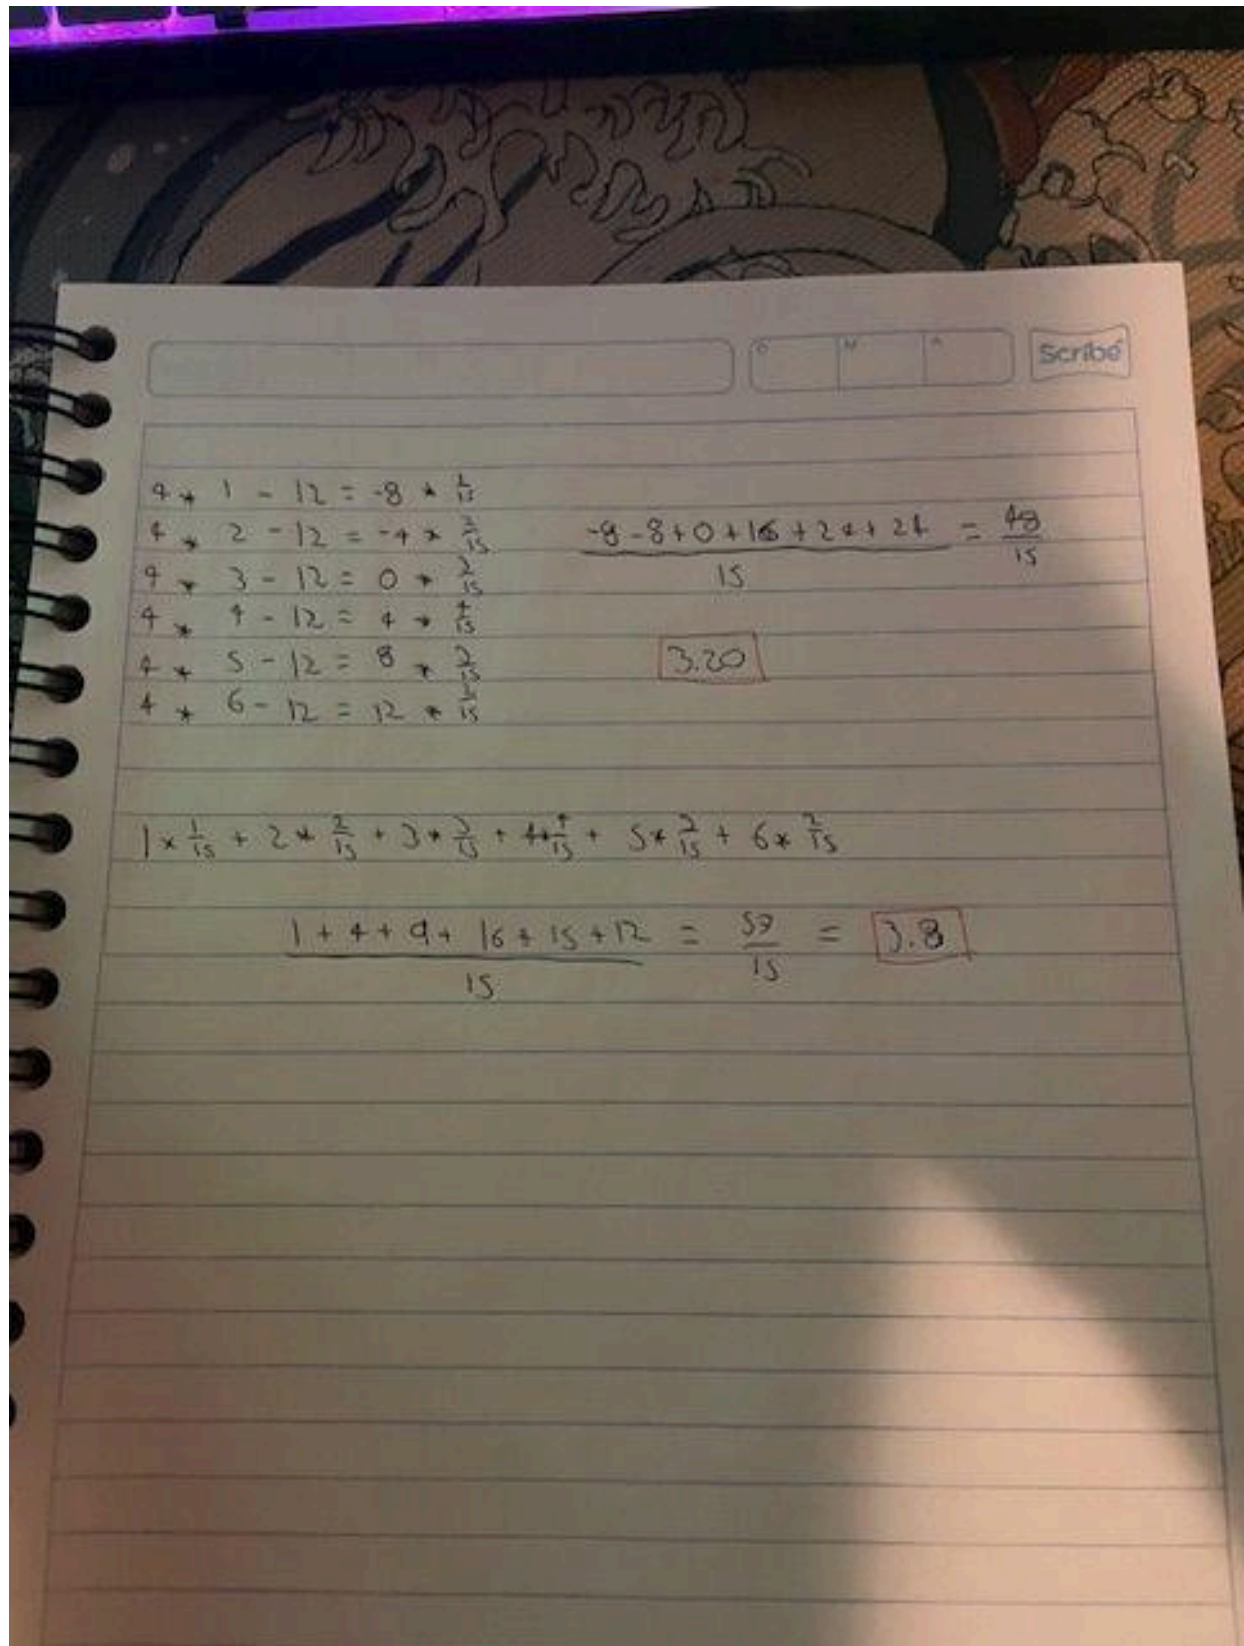 Scribe
4 * 1 - 12 = -8 * 1/15
4 * 2 - 12 = -4 * 2/15
4 * 3 - 12 = 0 * 3/15
4 * 4 - 12 = 4 * 4/15
4 * 5 - 12 = 8 * 3/15
4 * 6 - 12 = 12 * 2/15
-8 - 8 + 0 + 16 + 24 + 24 = 48
15 15
3.20
1 * 1/15 + 2 * 2/15 + 3 * 3/15 + 4 * 4/15 + 5 * 3/15 + 6 * 2/15
1 + 4 + 9 + 16 + 15 + 12 = 57 = 3.8
15 15